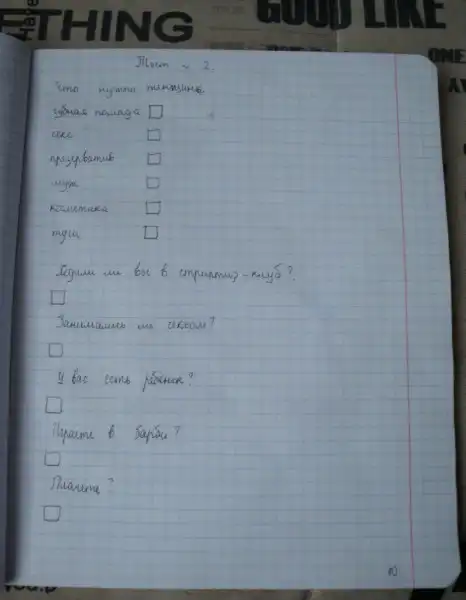 THING
GOOD LIKE
ONE
Тест № 2.
Что нужно женщине
губная помада
секс
презерватив
муж
косметика
Ходили ли вы в стриптиз-клуб?
Занимались ли сексом?
У вас есть ребёнок?
Играете в барби?
Плачете?